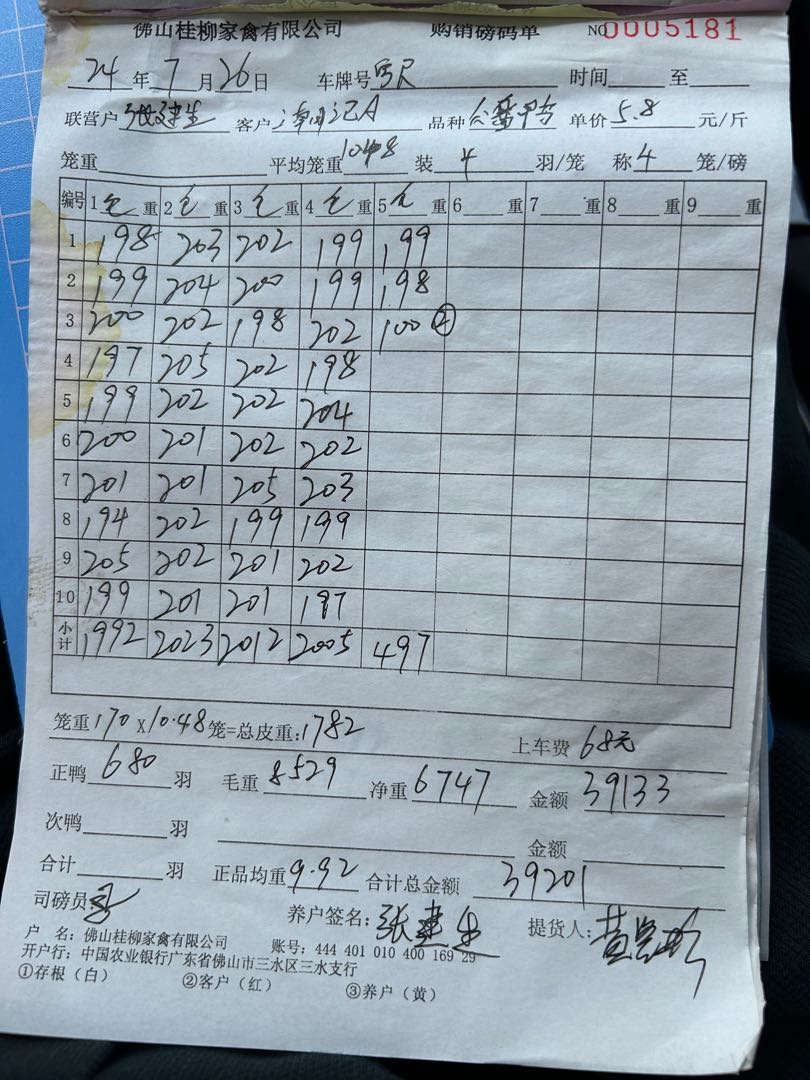 佛山桂柳家禽有限公司 购销磅码单 NO 0005181
24 年 7 月 26 日 车牌号 时间 至
联营户 张建生 客户 记A 品种 单价 5.8 元/斤
笼重 平均笼重 1048 装 4 羽/笼 称 4 笼/磅
编号 1 毛 重 2 毛 重 3 毛 重 4 毛 重 5 毛 重 6 重 7 重 8 重 9 重
1 198 203 202 199 199
2 199 204 200 199 198
3 200 202 198 202 100 ②
4 197 205 202 198
5 199 202 202 204
6 200 201 202 202
7 201 201 205 203
8 194 202 199 199
9 205 202 201 202
10 199 201 201 197
小计 1992 2023 2012 2005 497
笼重 170 X 10.48 笼=总皮重: 1782 上车费 68元
正鸭 680 羽 毛重 8529 净重 6747 金额 39133
次鸭 羽 金额
合计 羽 正品均重 9.92 合计总金额 39201
司磅员: 养户签名: 张建生 提货人: 黄
户 名: 佛山桂柳家禽有限公司 账号: 444 401 010 400 169 29
开户行: 中国农业银行广东省佛山市三水区三水支行
①存根(白) ②客户(红) ③养户(黄)